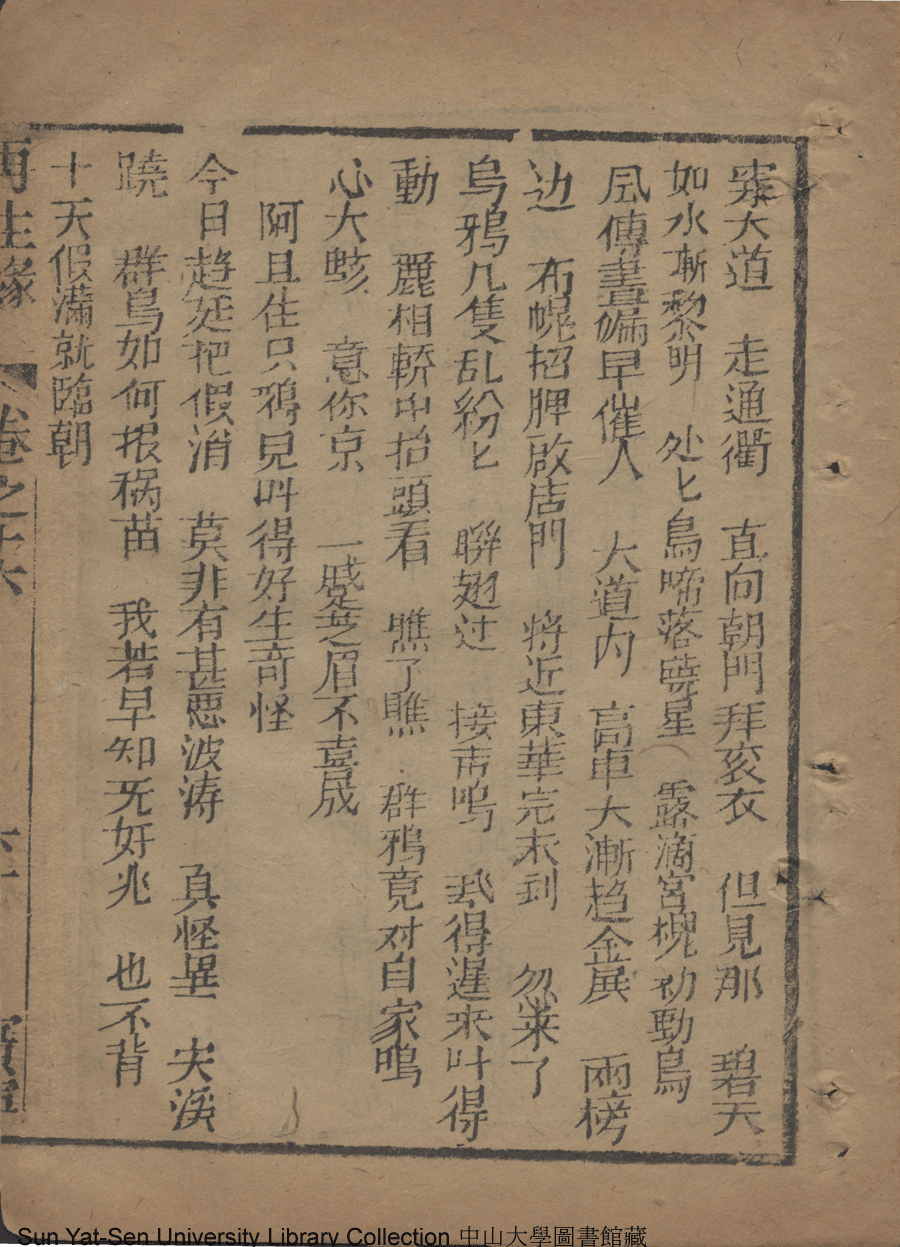 穿大道　走通衢　直向朝門拜衮衣　但見那　碧天
如水漸黎明　处匕鳥啼落曉星　露滴宮槐初動鳥
風傳晝漏早催人　大道內　高車大漸趋金展　兩榜
边　布幌招牌啟店門　將近東華完未到　忽来了
烏鴉几隻乱紛匕　聨翅过　接声鳴　飛得遲来叶得
動　麗相轎中抬頭看　瞧了瞧　群鴉竟对自家鳴
心大駭　意你京　一蹙芝眉不喜成
阿且住只鴉見叫得好生竒怪
今日趋廷把假消　莫非有甚悪波涛　真怪異　実溪
蹺　群鳥如何报祸苗　我若早知旡好兆　也不背
十天假滿就臨朝
再生緣　卷之十六
中山大學圖書館藏
Sun Yat-Sen University Library Collection